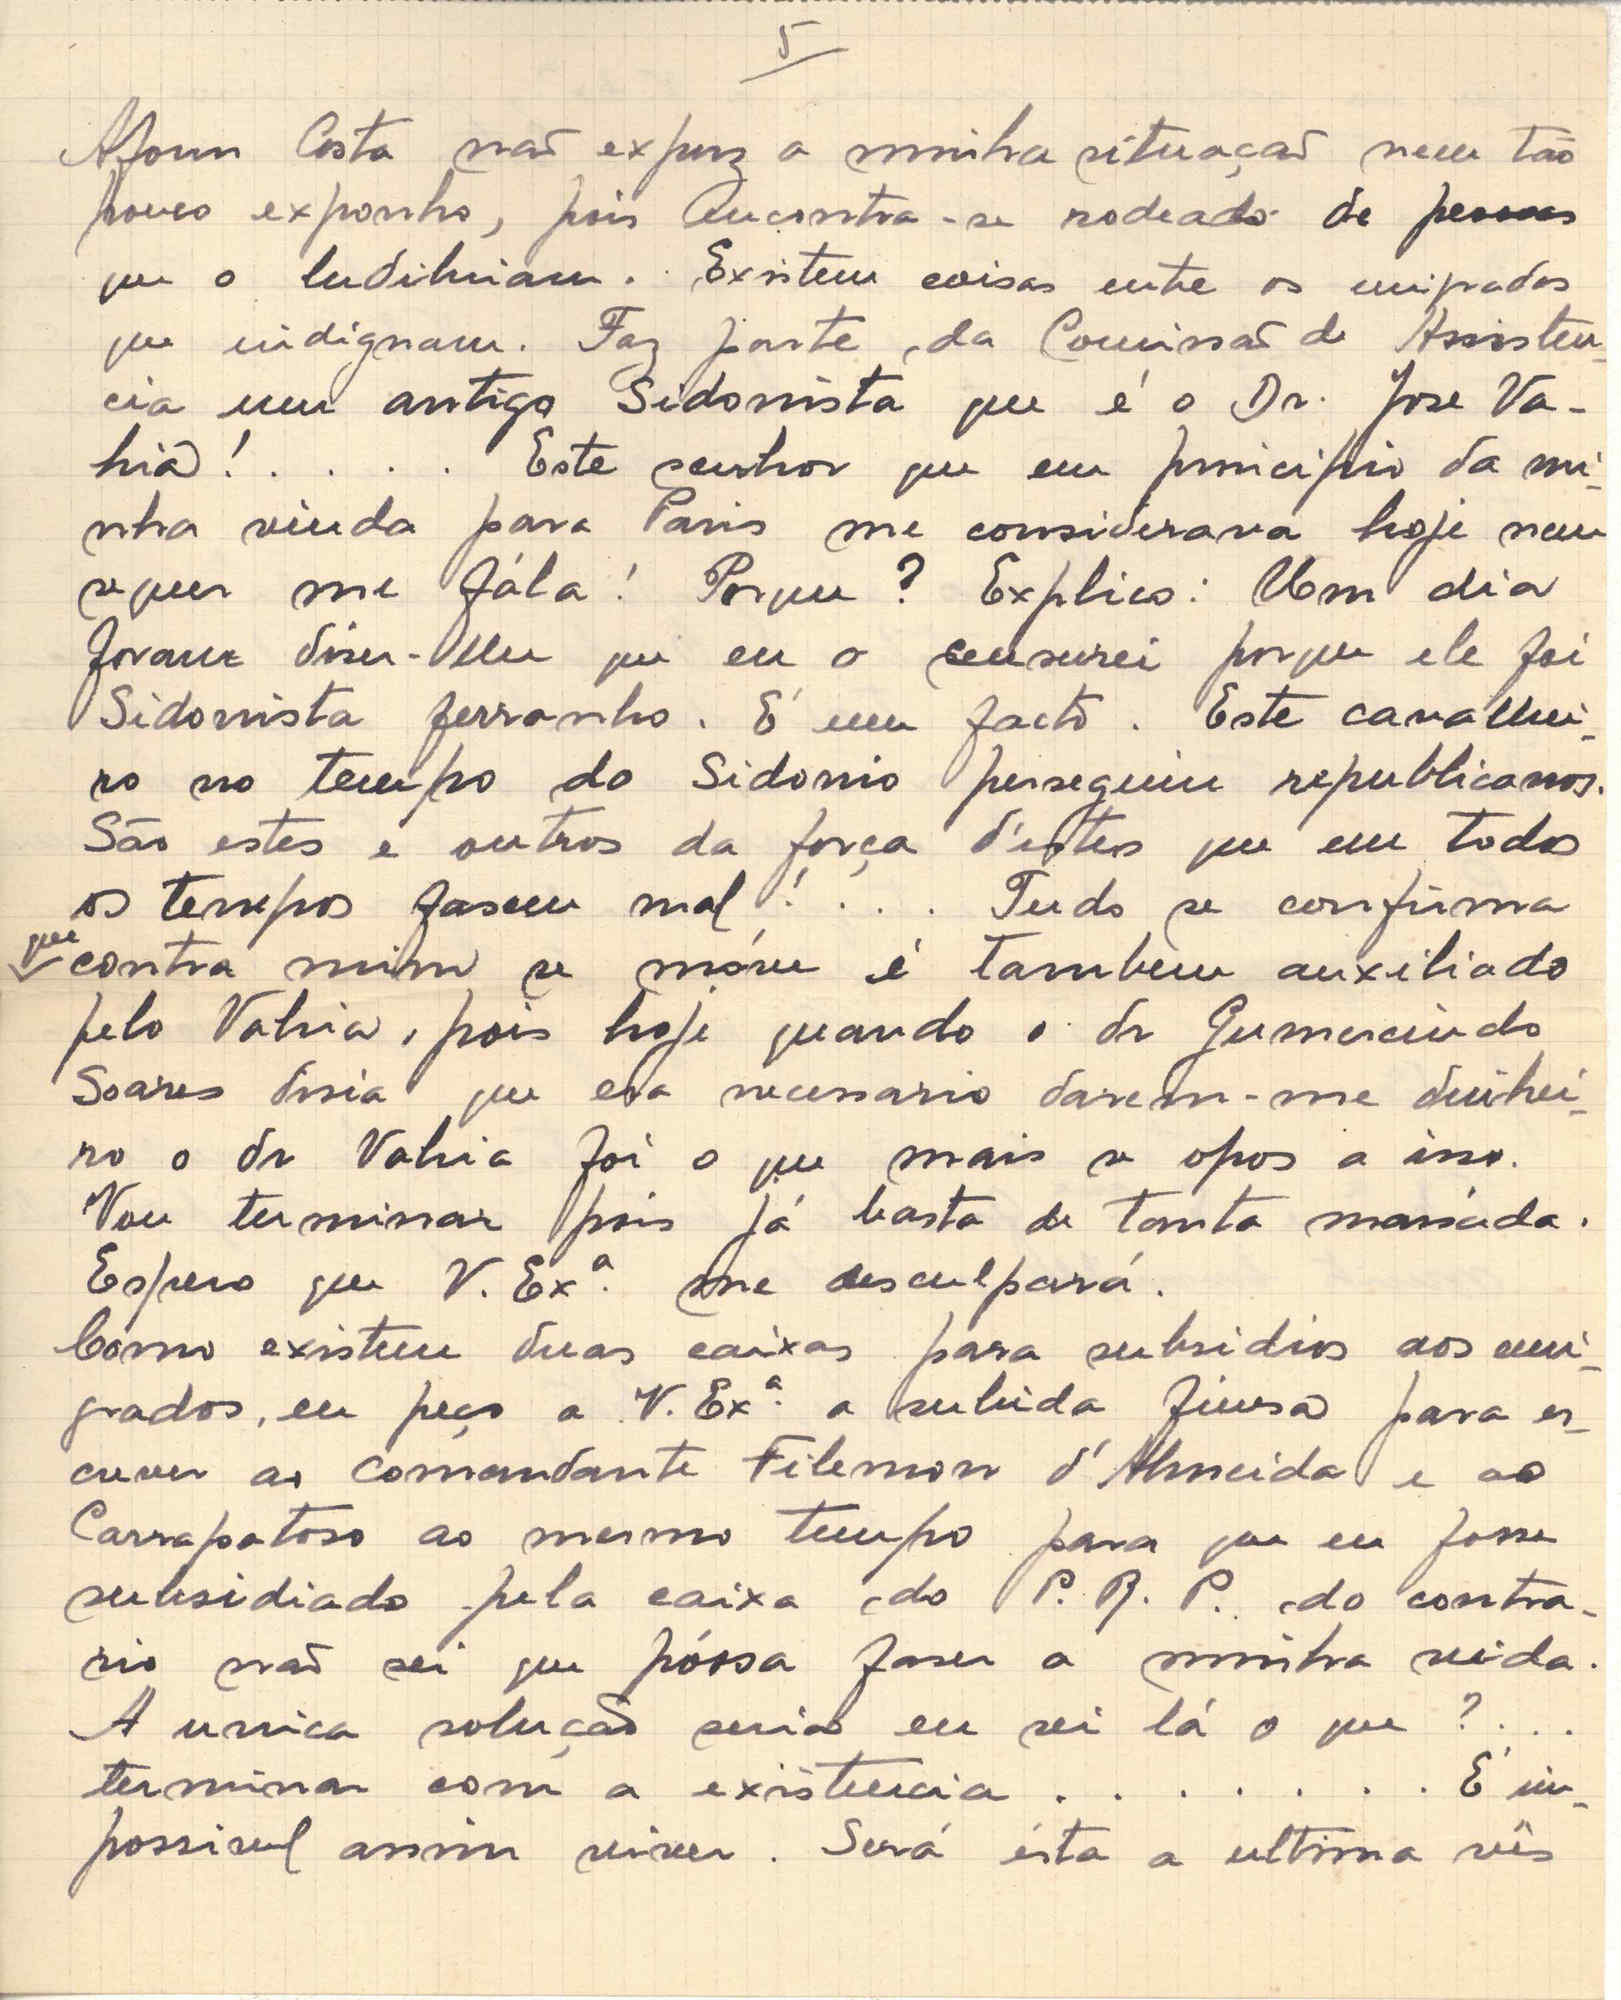 5
Afonso Costa não expuz a minha situação nem tão
pouco exponho, pois encontra-se rodeado de pessoas
que o ludibriam. Existem coisas entre os emigrados
que indignam. Faz parte da Comissão de Assisten-
cia um antigo Sidonista que é o Dr. José Va-
hia! . . . . Este senhor que em principio da mi-
nha vinda para Paris me considerava hoje nem
sequer me fála! Porque? Explico: Um dia
foram diser-lhe que eu o censurei porque ele foi
Sidonista ferranho. É um facto. Este cavalhei-
ro no tempo do Sidonio perseguiu republicanos.
São estes e outros da força d'estes que em todos
os tempos fasem mal! . . . Tudo se confirma
que contra mim se móve é tambem auxiliado
pelo Vahia, pois hoje quando o dr Gumercindo
Soares disia que era necessario darem-me dinhei-
ro o dr Vahia foi o que mais se opos a isso.
Vou terminar pois já basta de tanta massáda.
Espero que V. Exª. me desculpará.
Como existem duas caixas para subsidios aos emi-
grados, eu peço a V. Exª. a subida finesa para es-
crever ao Comandante Filemon d'Almeida e ao
Carrapatoso ao mesmo tempo para que eu fosse
subsidiado pela caixa do P. R. P. do contra-
rio não sei que póssa faser a minha vida.
A unica solução seria eu sei lá o que? . . .
terminar com a existencia . . . . . . . É im-
possivel assim viver. Será ésta a ultima vês